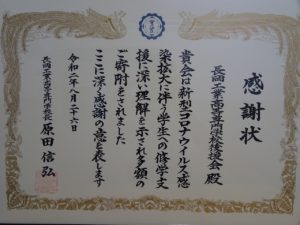 感謝状
長岡工業高等専門学校後援会 殿
貴会は新型コロナウイルス感
染拡大に伴う学生への修学支
援に深い理解を示され多額の
ご寄附をされました
ここに深く感謝の意を表します
令和二年八月二十六日
長岡工業高等専門学校長 原田 信弘